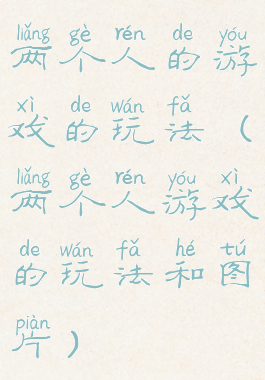 liǎng gè rén de yóu
两个人的游
xì de wán fǎ
戏的玩法（
liǎng gè rén yóu xì
两个人游戏
de wán fǎ hé tú
的玩法和图
piàn
片）